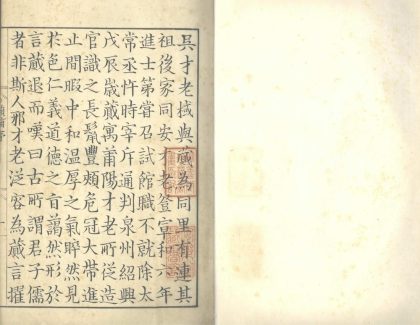 吳才老棫與蕆為同里有連其
祖後家同安才老登宣和六年
進士第嘗召試館職不就除太
常丞忤時宰斥通判泉州紹興
戊辰歲蕆寓莆陽才老所從造
官識之長鬣豐頰危冠大帶進
止閒暇中和温厚之氣睟然見
於色仁義道德之音藹然形於
言蕆退而嘆曰古所謂君子儒
者非斯人邪才老從容為蕆言擢